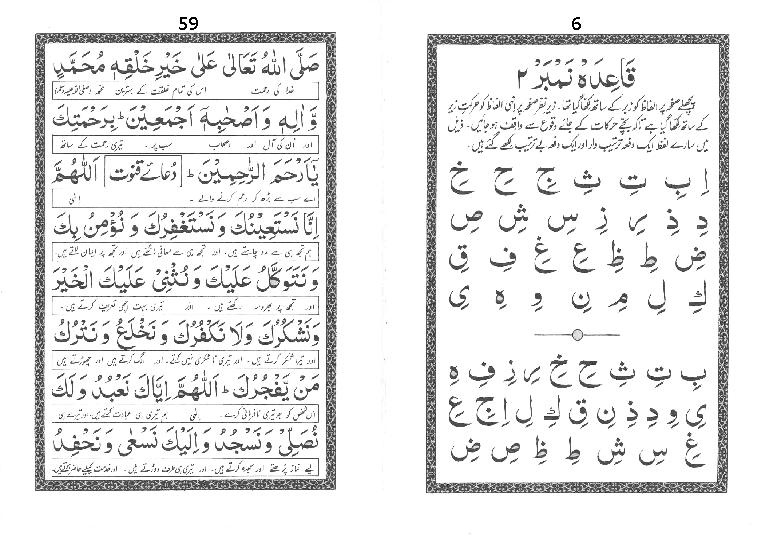 6
قَاعِدَہ نمبَر ۲
پچھلے صفحہ پر الفاظ کو زبر کے ساتھ لکھا گیا تھا۔ زیرِ نظر صفحہ پر اِنہی الفاظ کو حرکتِ زیر
کے ساتھ لکھا گیا ہے تاکہ بچے حرکات کے جائے وقوع سے واقف ہو جائیں۔ ذیل
میں سارے لفظ ایک دفعہ ترتیب وار اور ایک دفعہ بے ترتیب لکھے گئے ہیں۔
اِ بِ تِ ثِ جِ حِ خِ
دِ ذِ رِ زِ سِ شِ صِ
ضِ طِ ظِ عِ غِ فِ قِ
كِ لِ مِ نِ وِ هِ یِ
بِ تِ ثِ حِ خِ رِ زِ فِ هِ
یِ وِ دِ ذِ نِ قِ كِ لِ اِ جِ عِ
غِ سِ شِ طِ ظِ صِ ضِ
59
صَلَّى اللهُ تَعَالٰى عَلٰى خَيْرِ خَلْقِهٖ مُحَمَّدٍ
خدا کی رحمت اس کی تمام خلقت کے بہترین محمد
وَّاٰلِهٖ وَاَصْحَابِهٖ اَجْمَعِيْنَ ط بِرَحْمَتِكَ
اور اُن کی آل اور اصحاب سب پر۔ تیری رحمت کے ساتھ
يَآ اَرْحَمَ الرَّاحِمِيْنَ ط دُعائے قنوت اَللّٰهُمَّ
اے سب سے بڑھ کر رحم کرنے والے۔ الٰہی
اِنَّا نَسْتَعِيْنُكَ وَنَسْتَغْفِرُكَ وَنُؤْمِنُ بِكَ
ہم تجھ ہی سے مدد چاہتے ہیں۔ اور تجھ ہی سے معافی مانگتے ہیں اور تجھ پر ایمان لاتے ہیں
وَنَتَوَكَّلُ عَلَيْكَ وَنُثْنِىْ عَلَيْكَ الْخَيْرَ
اور تجھ پر بھروسہ رکھتے ہیں۔ اور تیری بہت اچھی تعریف کرتے ہیں۔
وَنَشْكُرُكَ وَلَا نَكْفُرُكَ وَنَخْلَعُ وَنَتْرُكُ
اور تیرا شکر کرتے ہیں۔ اور تیری ناشکری نہیں کرتے۔ اور الگ کرتے ہیں اور چھوڑتے ہیں
مَنْ يَّفْجُرُكَ ط اَللّٰهُمَّ اِيَّاكَ نَعْبُدُ وَلَكَ
اس شخص کو جو تیری نافرمانی کرے۔ الٰہی ہم تیری ہی عبادت کرتے ہیں، اور تیرے ہی
نُصَلِّىْ وَنَسْجُدُ وَاِلَيْكَ نَسْعٰى وَنَحْفِدُ
لیے نماز پڑھتے اور سجدہ کرتے ہیں۔ اور تیری ہی طرف دوڑتے ہیں۔